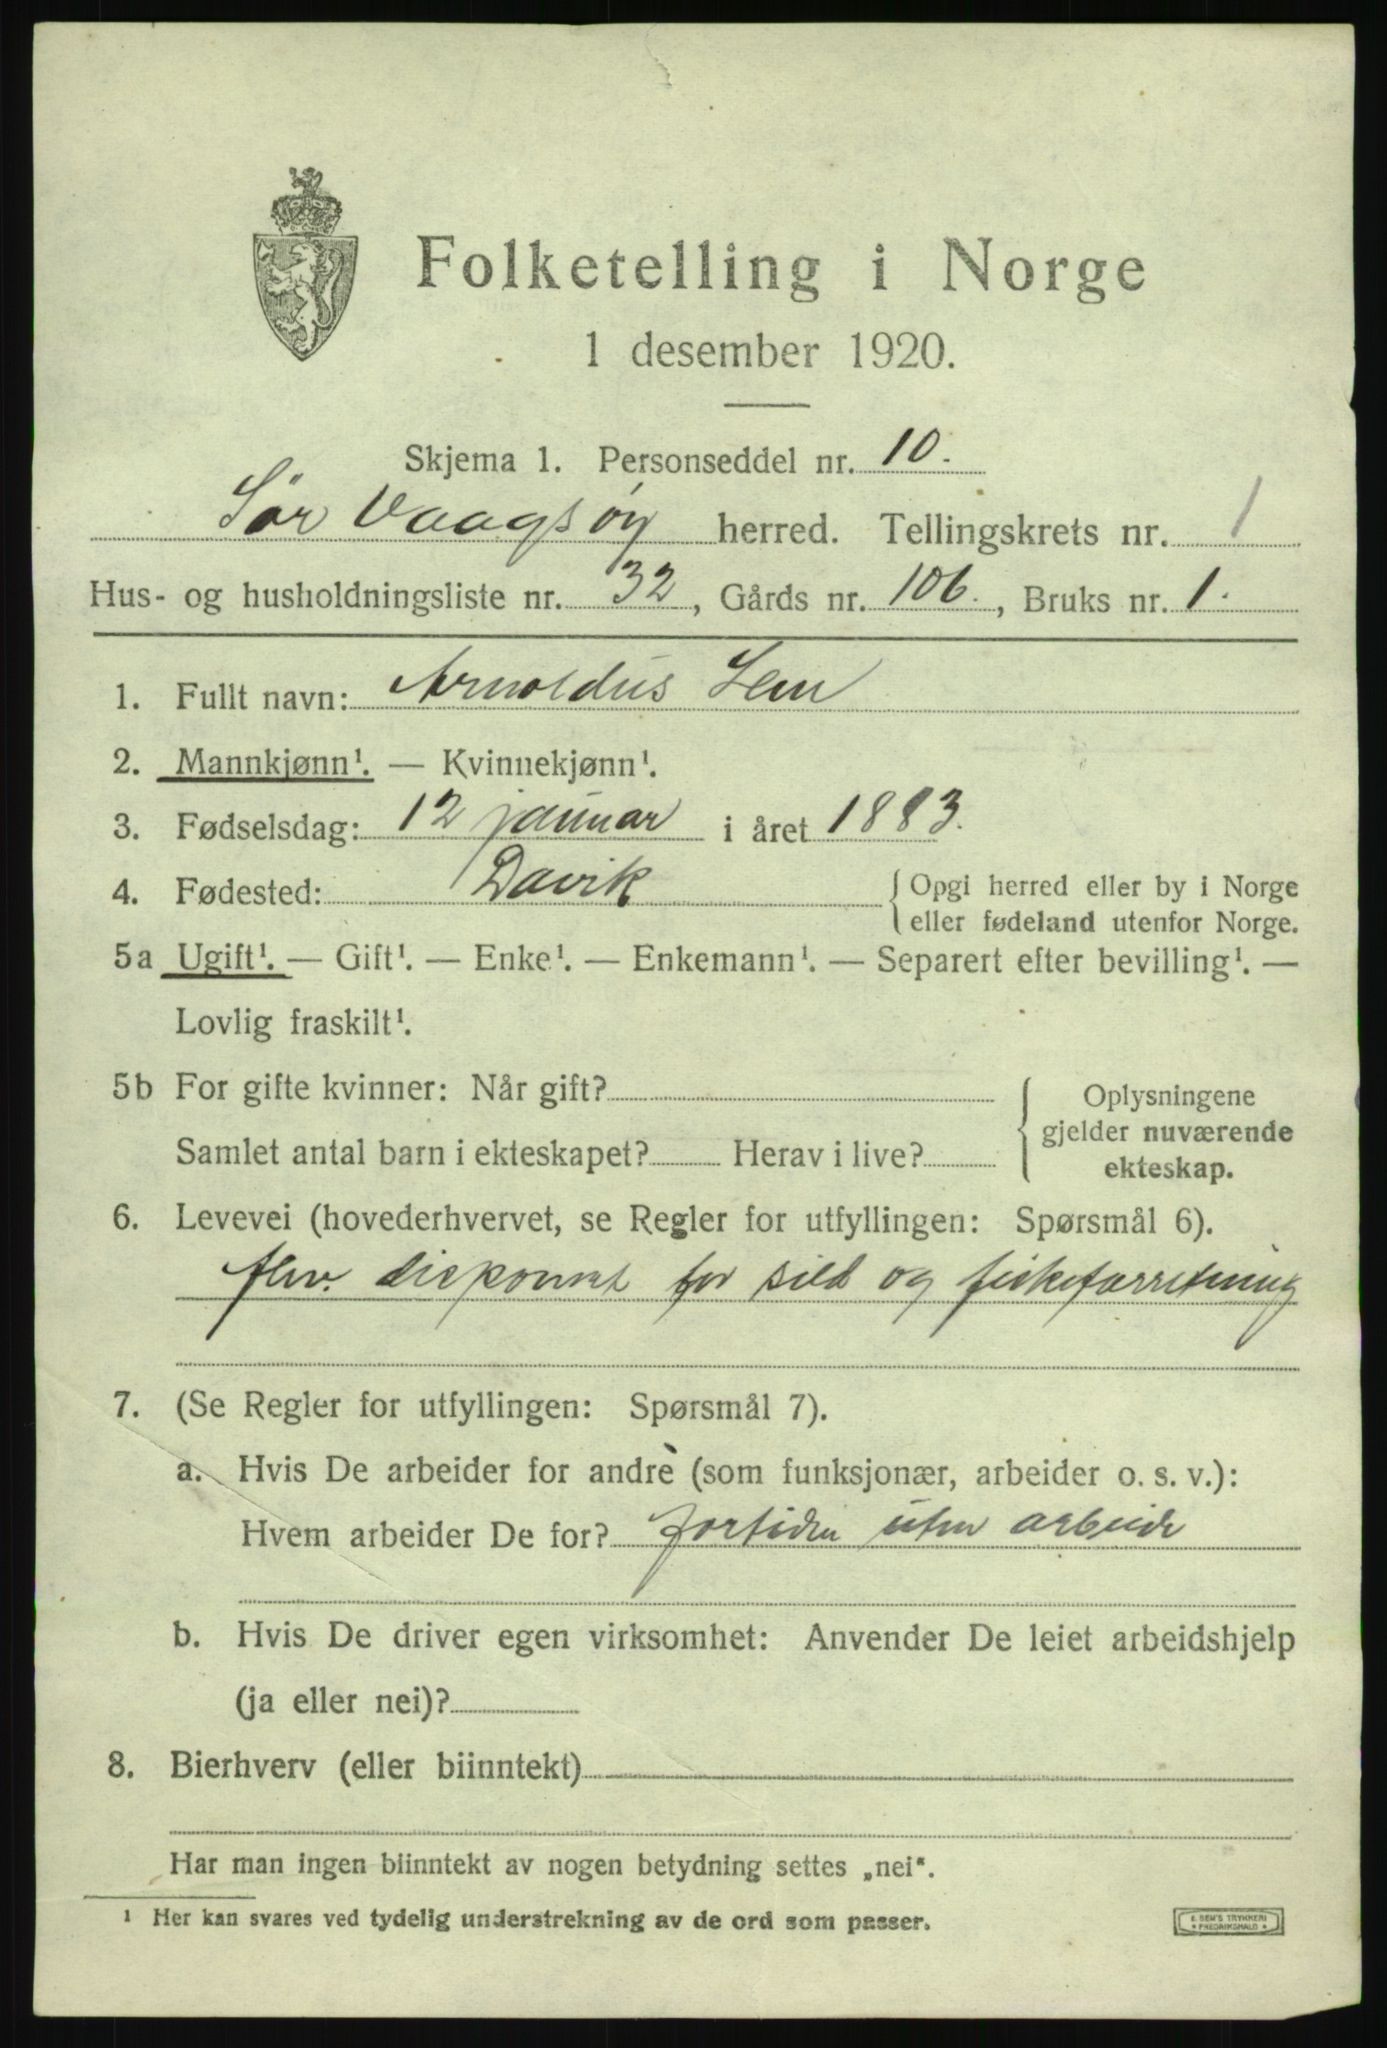 Folketelling i Norge
1 desember 1920.
Skjema 1. Personseddel nr. 10.
Sør Vaagsøy herred. Tellingskrets nr. 1
Hus- og husholdningsliste nr. 32, Gårds nr. 106., Bruks nr. 1.
1. Fullt navn: Arnoldus Lem
2. Mannkjønn¹. — Kvinnekjønn¹.
3. Fødselsdag: 12 januar i året 1883.
4. Fødested: Davik { Opgi herred eller by i Norge
eller fødeland utenfor Norge.
5a Ugift¹. — Gift¹. — Enke¹. — Enkemann¹. — Separert efter bevilling¹. —
Lovlig fraskilt¹.
5b For gifte kvinner: Når gift? { Oplysningene
gjelder nuværende
Samlet antal barn i ekteskapet? Herav i live? ekteskap.
6. Levevei (hovederhvervet, se Regler for utfyllingen: Spørsmål 6).
for sild og fiskeforretning
7. (Se Regler for utfyllingen: Spørsmål 7).
a. Hvis De arbeider for andre (som funksjonær, arbeider o. s. v.):
Hvem arbeider De for? fortiden uten arbeide
b. Hvis De driver egen virksomhet: Anvender De leiet arbeidshjelp
(ja eller nei)?
8. Bierhverv (eller biinntekt)
Har man ingen biinntekt av nogen betydning settes „nei“.
¹ Her kan svares ved tydelig understrekning av de ord som passer.
E. SEM'S TRYKKERI
FREDRIKSHALD